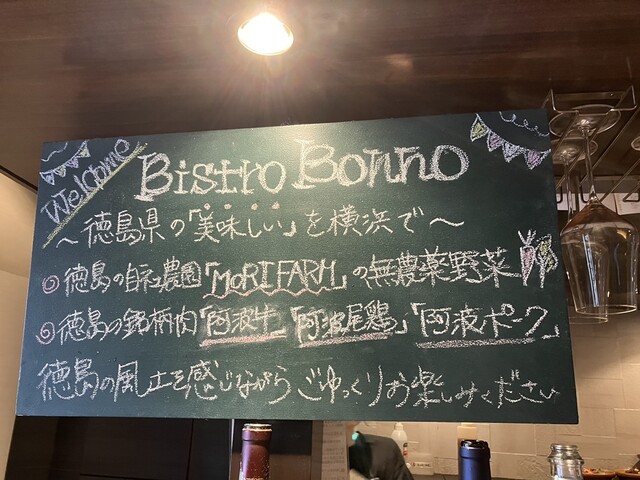 Welcome
Bistro Bonno
〜徳島県の「美味しい」を横浜で〜
徳島の自社農園「MORI FARM」の無農薬野菜
徳島の銘柄肉「阿波牛」「阿波尾鶏」「阿波ポーク」
徳島の風土を感じながらごゆっくりお楽しみください